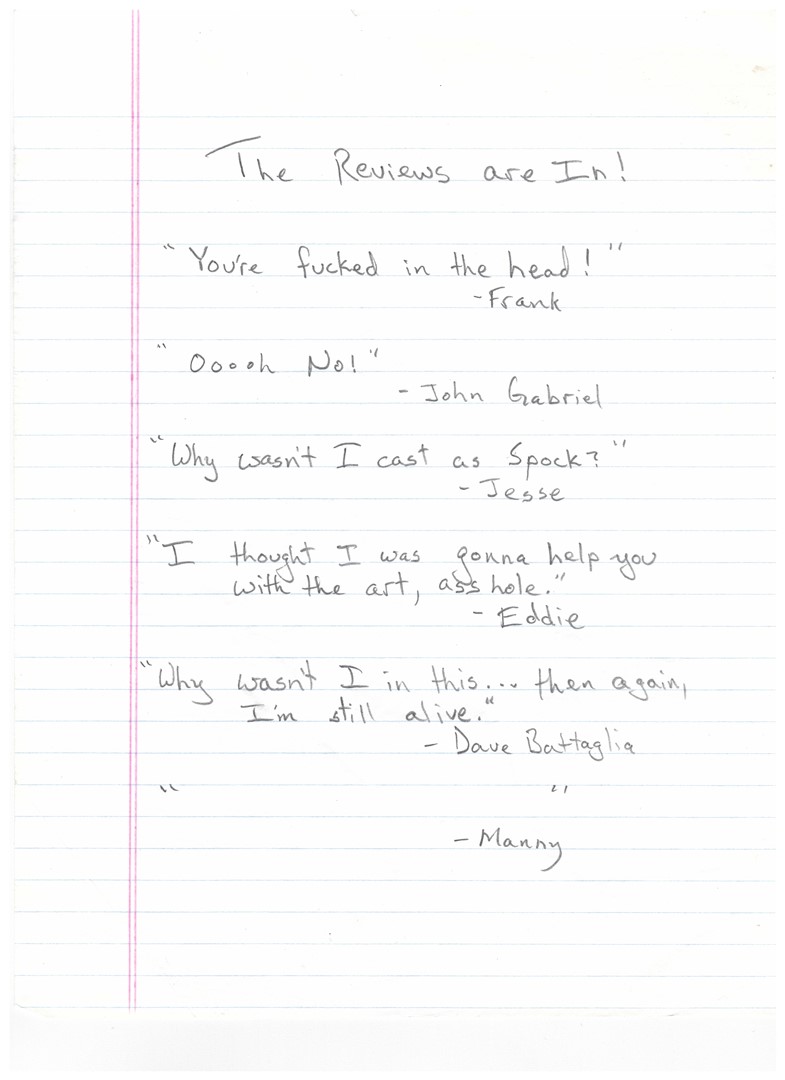 The Reviews are In!
"You're fucked in the head!"
-Frank
"Ooooh No!"
- John Gabriel
"Why wasn't I cast as Spock?"
- Jesse
"I thought I was gonna help you
with the art, asshole."
- Eddie
"Why wasn't I in this... then again,
I'm still alive."
- Dave Battaglia
" "
- Manny